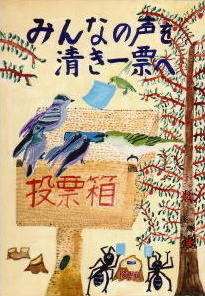 みんなの声を
清き一票へ
投票箱